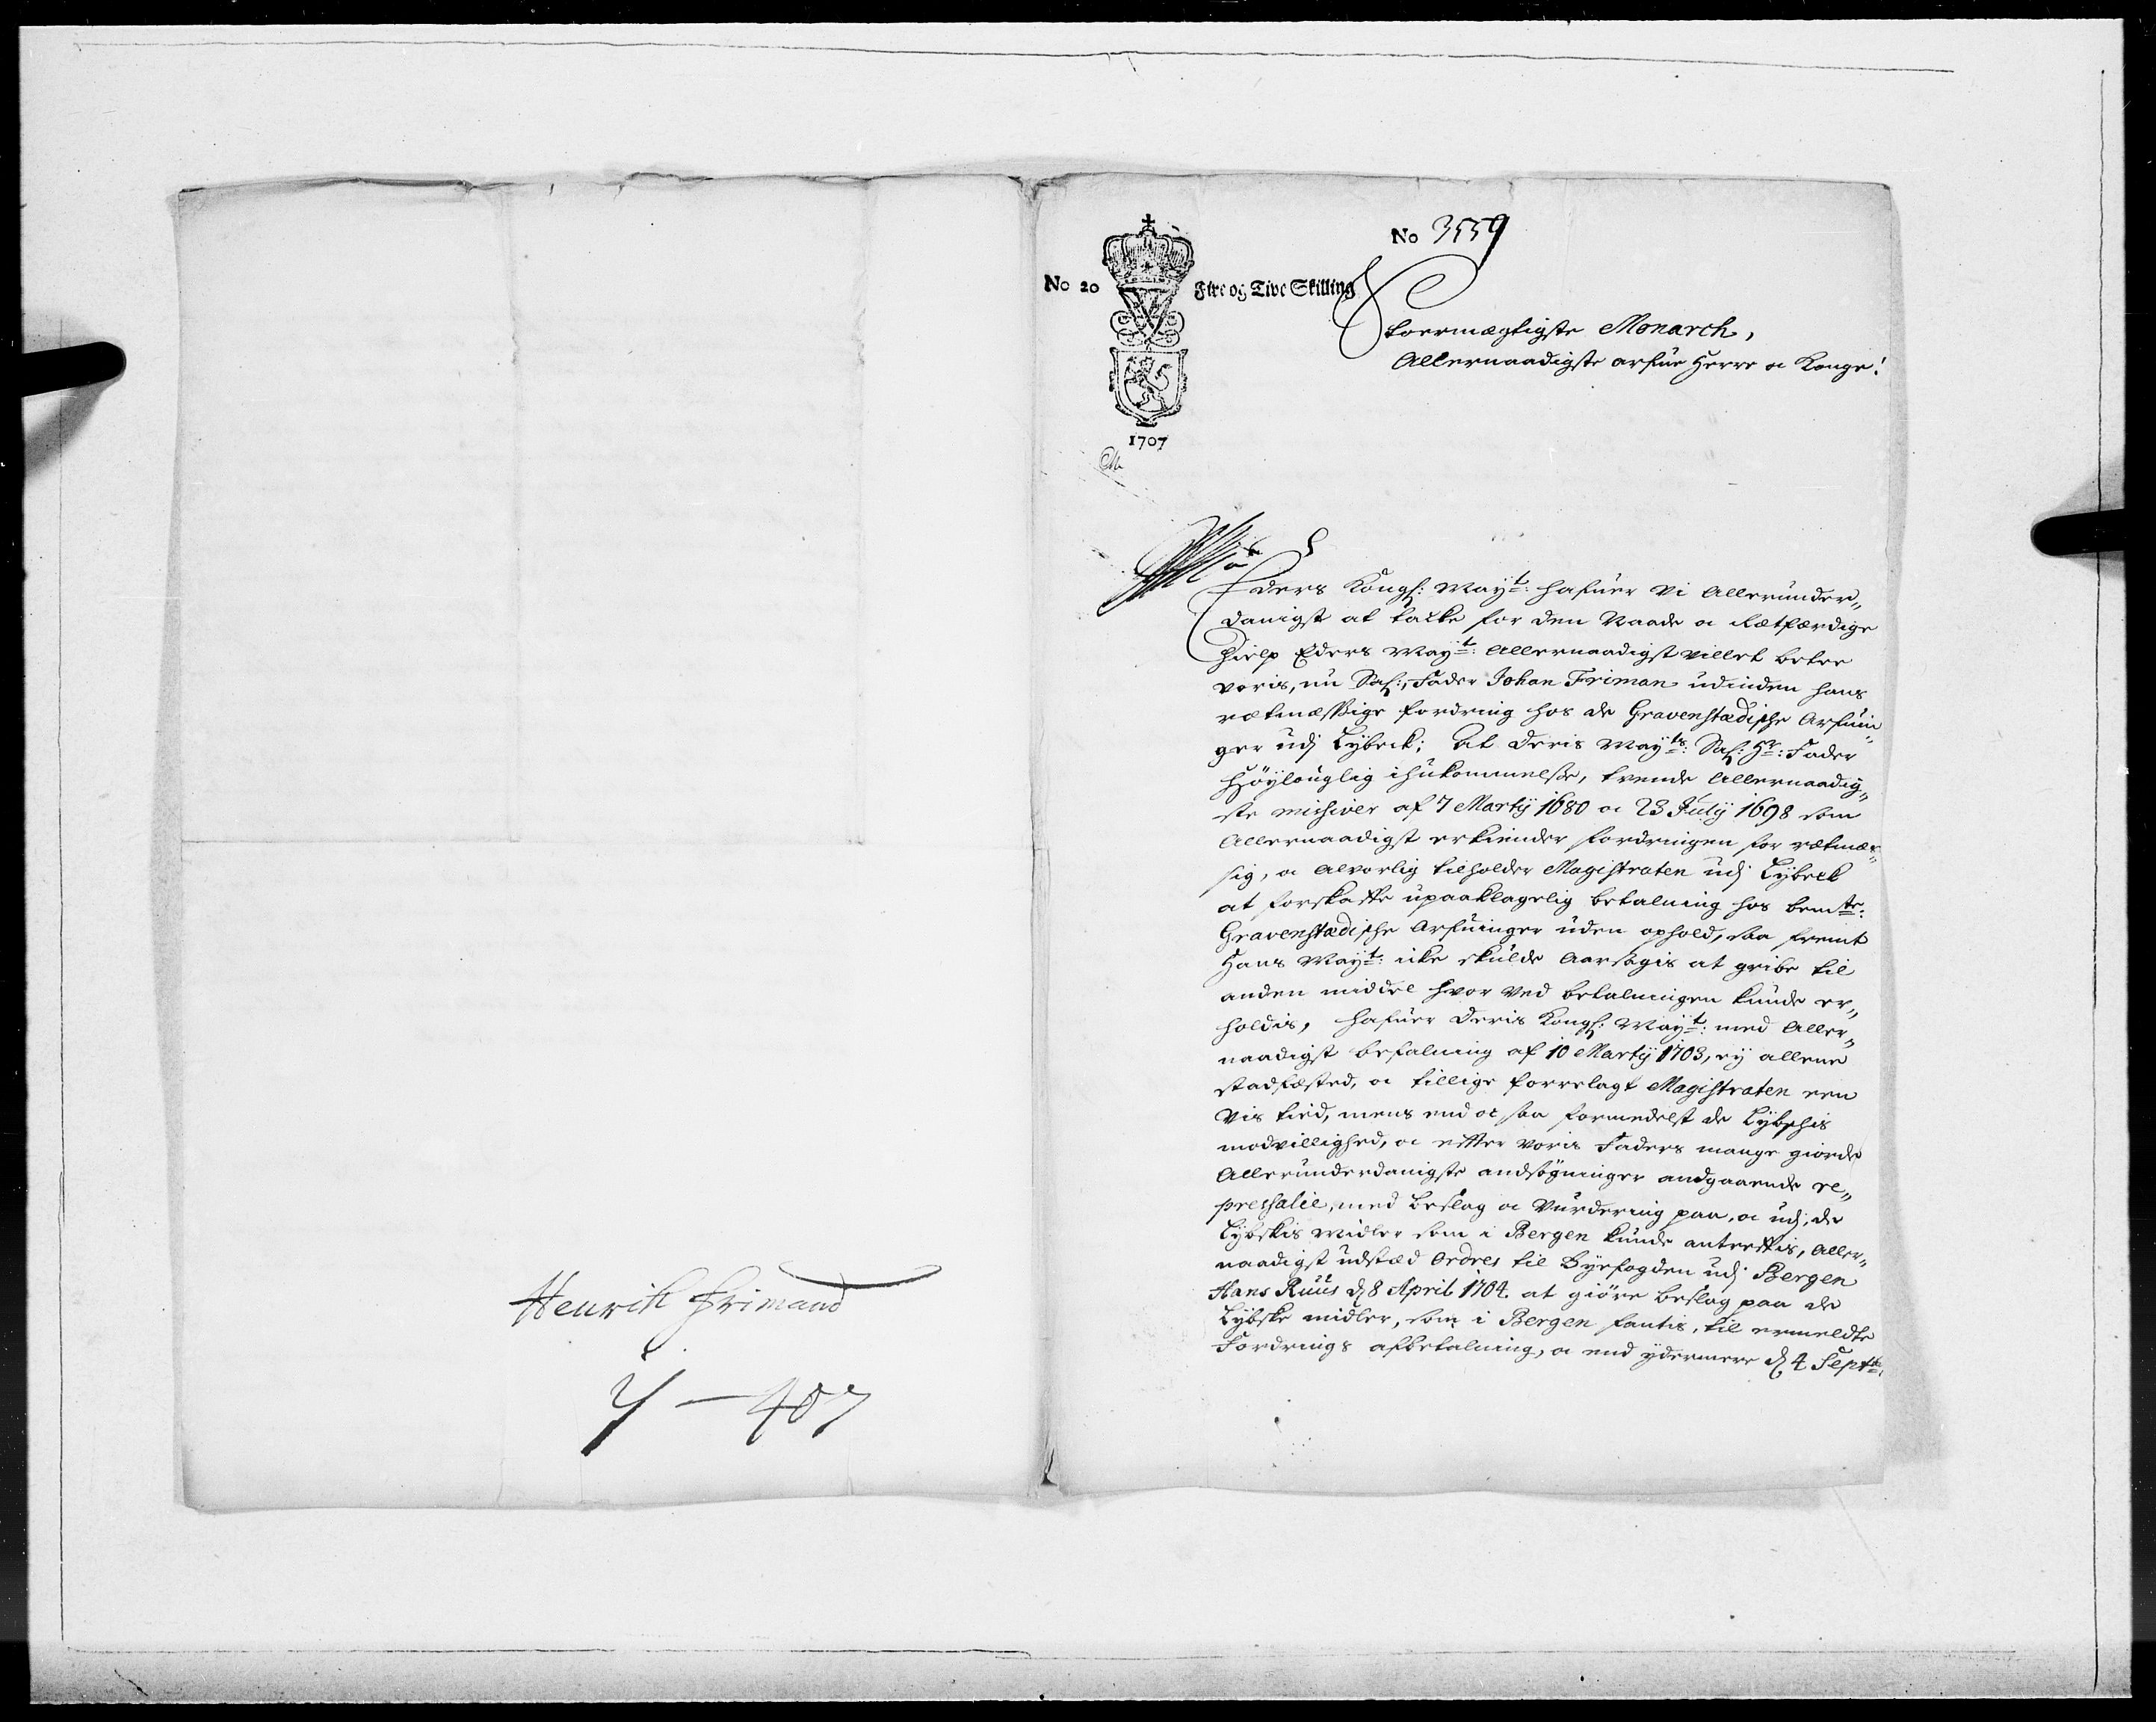 Henrik Frimand
4 - 407
No 3559
No 20 Fire og Tive Skilling
1707
Stoermægtigste Monarch,
Allernaadigste arfue Herre oc Konge!
Eders Kongl: May<sup>t</sup>: hafuer vi Allerunder„
danigst at takke for den Naade oc Rætfærdige
hielp Eders May<sup>t</sup>: Allernaadigst villet betee
voris, nu Sal:, Fader Johan Friman udinden hans
rætmæssige fordring hos de Gravenstædische Arfuin„
ger udj Lybeck; At Deris May<sup>ts</sup>: Sal: Hr: Fader
Høylouglig ihukommelse, trende Allernaadig„
ste missiver af 7 Martij 1680 oc 23 Julij 1698 som
Allernaadigst erkiender fordringen for rætmæs„
sig, oc alvorlig tilholder Magistraten udj Lybeck
at forskaffe upaaklagelig betalning hos bem<sup>te</sup>:
Gravenstædische Arfuinger uden ophold, saa fremt
Hans May<sup>t</sup>: icke skulde aarsagis at gribe til
anden middel hvor ved betalningen kunde er„
holdis, hafuer Deris Kongl: May<sup>t</sup>: med Aller„
naadigst befalning af 10 Martij 1703, ey allene
stadfæsted, oc tillige forrelagt Magistraten een
vis tiid, mens end oc saa formedelst de Lybschis
modvillighed, oc effter voris Faders mange giorde
Allerunderdanigste andsøgninger andgaaende re„
pressalie, med beslag oc vurdering paa, oc udj, de
Lybskis midler som i Bergen kunde antreffis, Aller„
naadigst udstæd Ordres til Byefogden udj Bergen
Hans Ruus d. 8 April 1704. at giøre beslag paa de
Lybske midler, som i Bergen fantis, til ermeldte
Fordrings afbetalning, oc end ydermere d. 4 Sept<sup>br</sup>: